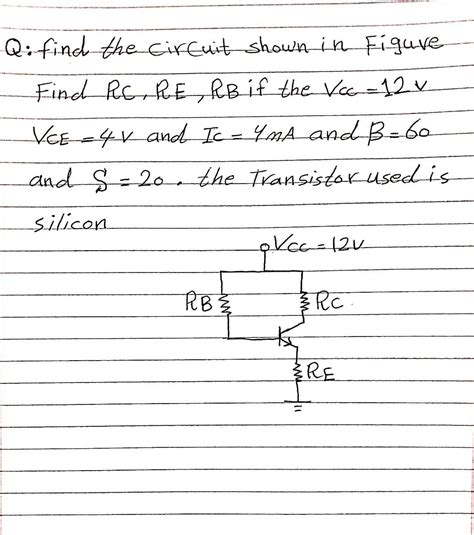 Q: find the circuit shown in Figure
Find RC, RE, RB if the Vcc = 12 v
VCE = 4 v and Ic = 4mA and β = 60
and S = 20 . the Transistor used is
silicon
Vcc = 12v
RB
RC
RE